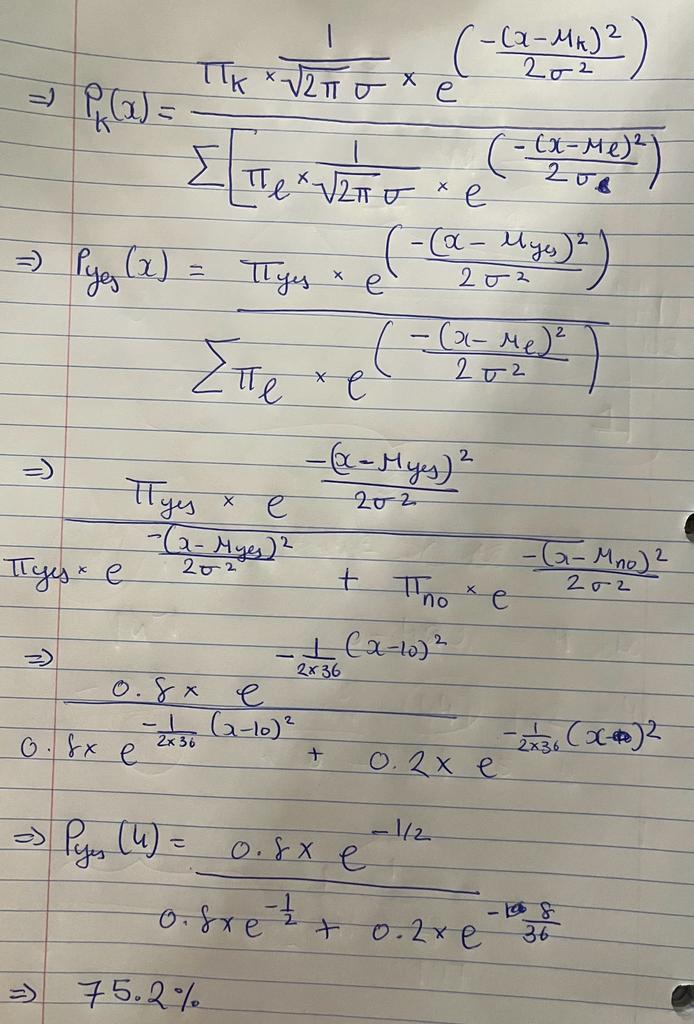 ⇒ P_k(x) = (π_k × 1/(√2π σ) × e^(-(x-μ_k)²/2σ²)) / (Σ[π_l × 1/(√2π σ) × e^(-(x-μ_l)²/2σ))
⇒ P_yes(x) = (π_yes × e^(-(x-μ_yes)²/2σ²)) / (Σπ_l × e^(-(x-μ_l)²/2σ²))
⇒ (π_yes × e^(-(x-μ_yes)²/2σ²)) / (π_yes × e^(-(x-μ_yes)²/2σ²) + π_no × e^(-(x-μ_no)²/2σ²))
⇒ (0.8 × e^(-1/(2×36) (x-10)²)) / (0.8 × e^(-1/(2×36) (x-10)²) + 0.2 × e^(-1/(2×36) (x-)²))
⇒ P_yes(4) = (0.8 × e^(-1/2)) / (0.8 × e^(-1/2) + 0.2 × e^(-8/36))
⇒ 75.2%